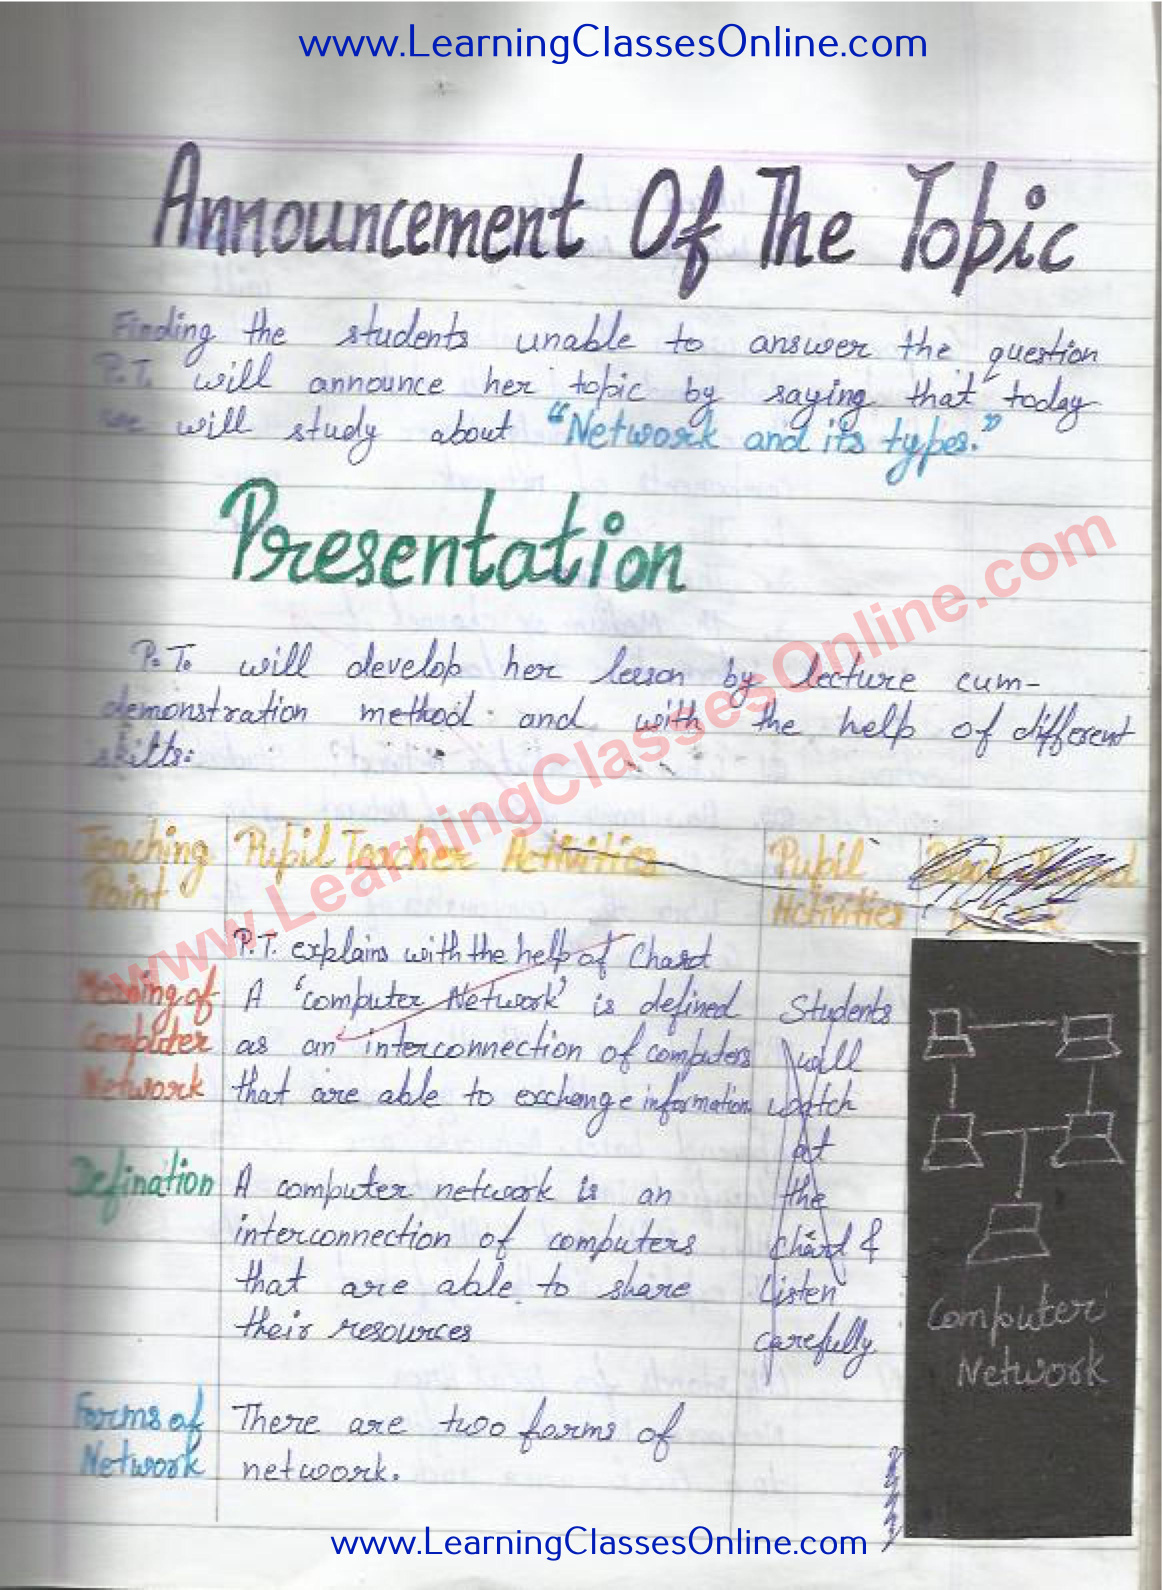 www.LearningClassesOnline.com
Announcement Of The Topic
Finding the students unable to answer the question
P.T. will announce her topic by saying that today
we will study about "Network and its types."
Presentation
P.T. will develop her lesson by lecture cum-
demonstration method. and with the help of different
skills.
www.LearningClassesOnline.com
Teaching
Point
Pupil Teacher Activities
Pupil
Activities
P.T. explains with the help of Chart
Meaning of
Computer
Network
A 'computer Network' is defined
as an interconnection of computers
that are able to exchange information
Students
will
watch
at
the
chart &
Listen
carefully
Defination
A computer network is an
interconnection of computers
that are able to share
their resources
Computer
Network
Forms of
Network
There are two forms of
network.
www.LearningClassesOnline.com